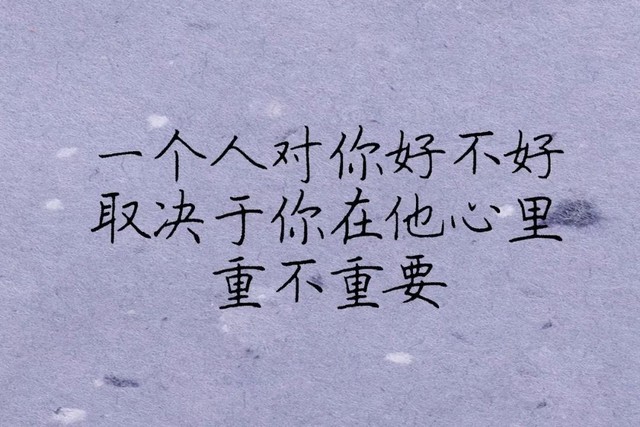 一个人对你好不好
取决于你在他心里
重不重要